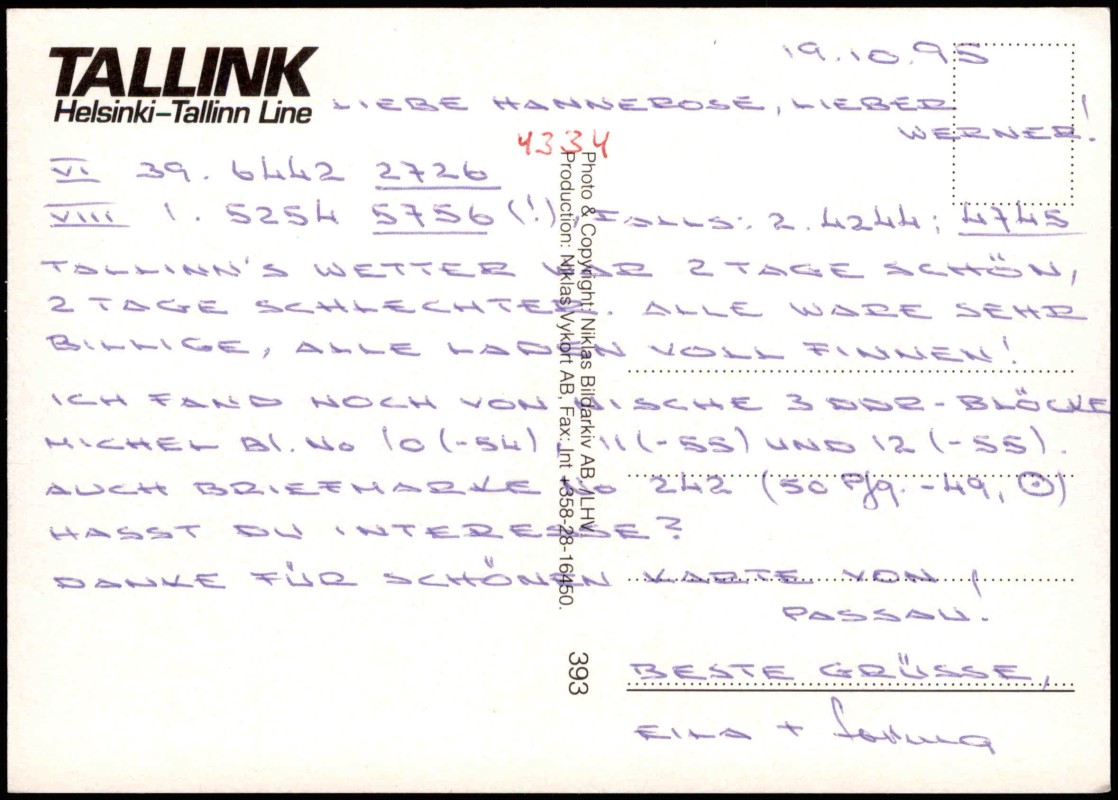 TALLINK
Helsinki–Tallinn Line
19.10.95
LIEBE HANNEROSE, LIEBER
WERNER!
4334
VI 39. 6442 2726
VIII 1. 5254 5756 (!), FALLS: 2. 4244; 4745
TALLINN'S WETTER WAR 2 TAGE SCHÖN,
2 TAGE SCHLECHTER. ALLE WARE SEHR
BILLIGE, ALLE LADEN VOLL FINNEN!
ICH FAND NOCH VON NISCHE 3 DDR-BLÖCKE
MICHEL Bl. No 10 (-54), 11 (-55) UND 12 (-55).
AUCH BRIEFMARKE No 242 (50 Pfg. -49, ⊙)
HASST DU INTERESSE?
DANKE FÜR SCHÖNEN KARTE VON
PASSAU!
BESTE GRÜSSE,
EILA +
Photo & Copyright: Niklas Bildarkiv AB /LHV
Production: Niklas Vykort AB, Fax: Int +358-28-16450.
393